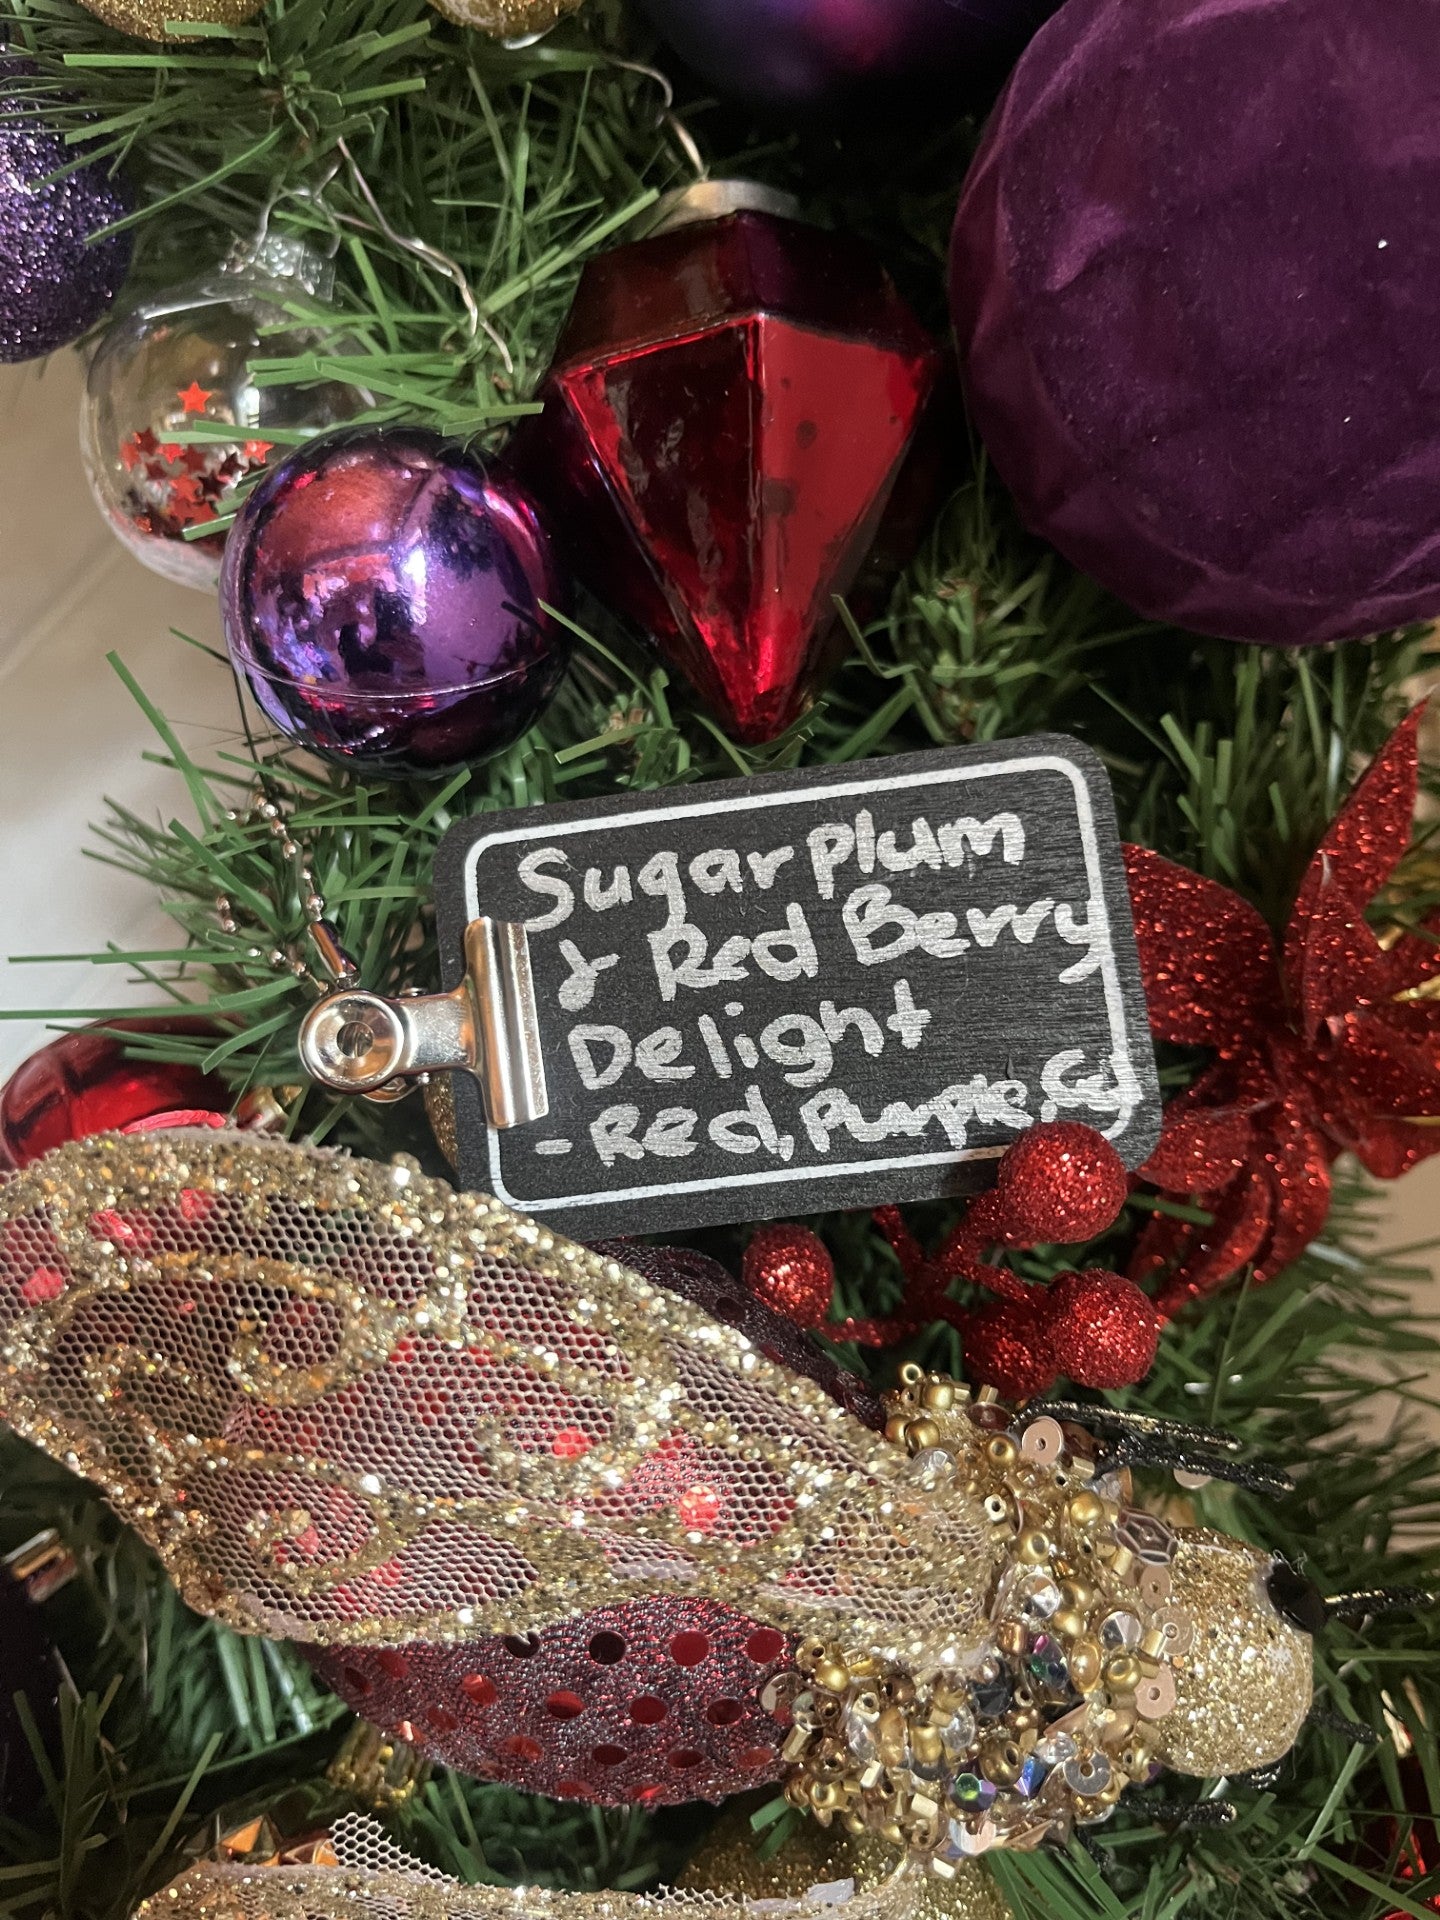 Sugar Plum
& Red Berry
Delight
- Red, Purple,